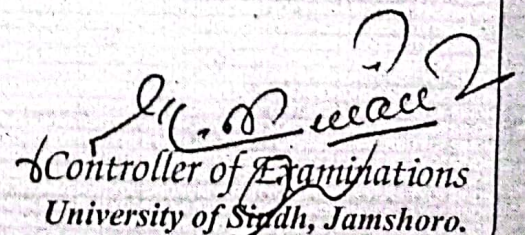 Controller of Examinations
University of Sindh, Jamshoro.